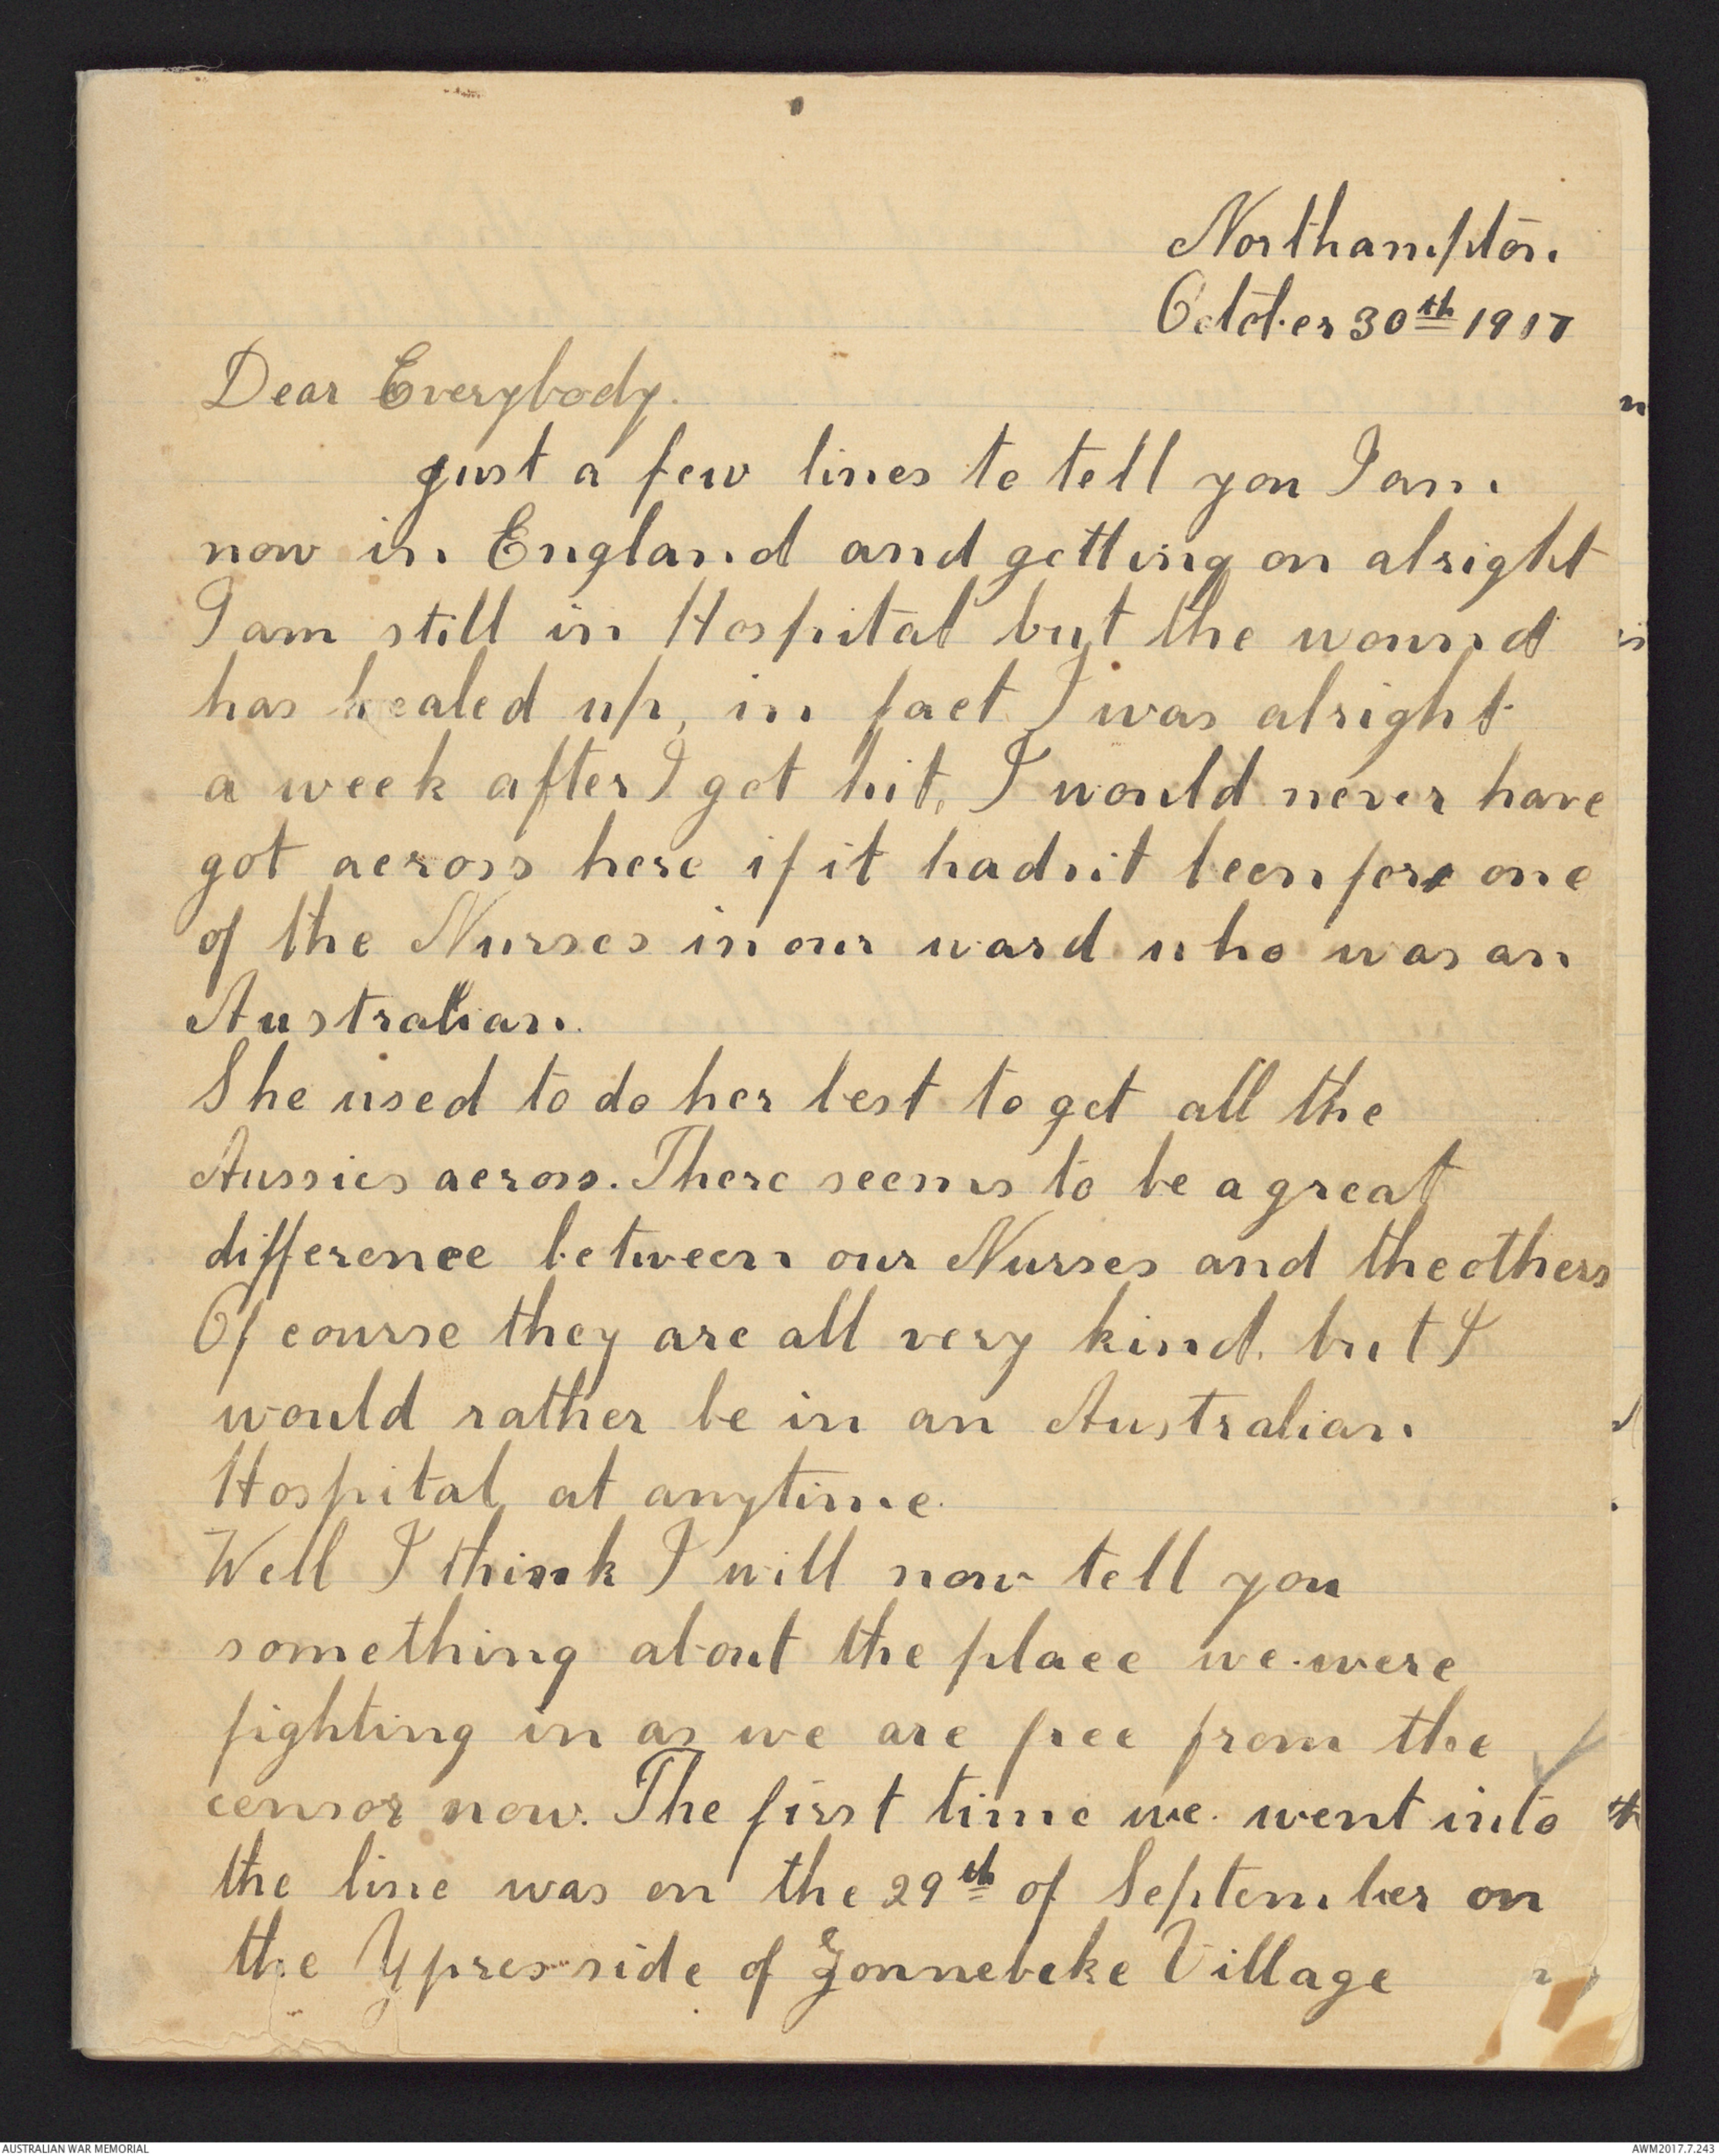 Northampton.
October 30th 1917
Dear Everybody.
just a few lines to tell you I am
now in England and getting on alright
I am still in Hospital but the wound
has healed up, in fact I was alright
a week after I got hit, I would never have
got across here if it hadn't been for one
of the Nurses in our ward who was an
Australian.
She used to do her best to get all the
Aussies across. There seems to be a great
difference between our Nurses and the others
Of course they are all very kind. but I
would rather be in an Australian
Hospital at anytime.
Well I think I will now tell you
something about the place we were
fighting in as we are free from the
censor now. The first time we went into
the line was on the 29th of September on
the Ypres side of Zonnebeke Village
AUSTRALIAN WAR MEMORIAL
AWM2017.7.243